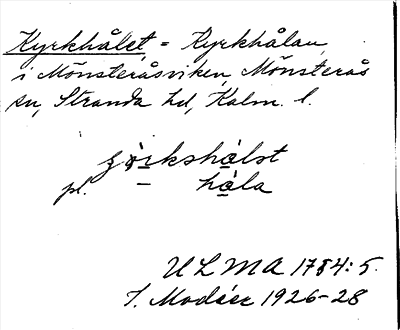 Kyrkhålet, = Kyrkhålan,
i Mönsteråsviken, Mönsterås
sn, Stranda hd, Kalm. l.
ȷö̀rkshȧ̀lst
pl. – hȧ̀la
ULMA 1784:5.
I. Modéer 1926-28